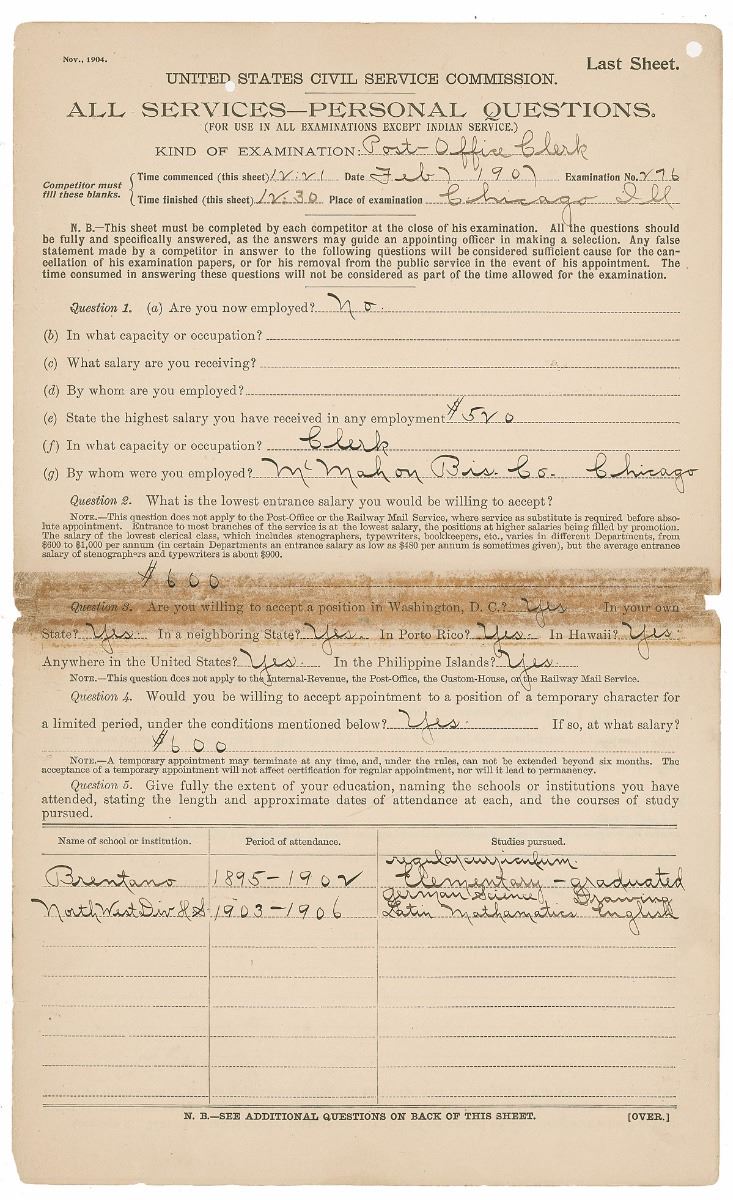 Nov., 1904.
Last Sheet.
UNITED STATES CIVIL SERVICE COMMISSION.
ALL SERVICES—PERSONAL QUESTIONS.
(FOR USE IN ALL EXAMINATIONS EXCEPT INDIAN SERVICE.)
KIND OF EXAMINATION: Post-Office Clerk
Competitor must fill these blanks.
Time commenced (this sheet) 12:21 Date Feb 7 1907 Examination No. 276
Time finished (this sheet) 12:30 Place of examination Chicago Ill
N. B.—This sheet must be completed by each competitor at the close of his examination. All the questions should
be fully and specifically answered, as the answers may guide an appointing officer in making a selection. Any false
statement made by a competitor in answer to the following questions will be considered sufficient cause for the can-
cellation of his examination papers, or for his removal from the public service in the event of his appointment. The
time consumed in answering these questions will not be considered as part of the time allowed for the examination.
Question 1. (a) Are you now employed? No.
(b) In what capacity or occupation?
(c) What salary are you receiving?
(d) By whom are you employed?
(e) State the highest salary you have received in any employment $520
(f) In what capacity or occupation? Clerk
(g) By whom were you employed? McMahon Bis. Co. Chicago
Question 2. What is the lowest entrance salary you would be willing to accept?
NOTE.—This question does not apply to the Post-Office or the Railway Mail Service, where service as substitute is required before abso-
lute appointment. Entrance to most branches of the service is at the lowest salary, the positions at higher salaries being filled by promotion.
The salary of the lowest clerical class, which includes stenographers, typewriters, bookkeepers, etc., varies in different Departments, from
$600 to $1,000 per annum (in certain Departments an entrance salary as low as $480 per annum is sometimes given), but the average entrance
salary of stenographers and typewriters is about $900.
$600
Question 3. Are you willing to accept a position in Washington, D. C.? Yes In your own
State? Yes. In a neighboring State? Yes. In Porto Rico? Yes. In Hawaii? Yes.
Anywhere in the United States? Yes. In the Philippine Islands? Yes.
NOTE.—This question does not apply to the Internal-Revenue, the Post-Office, the Custom-House, or the Railway Mail Service.
Question 4. Would you be willing to accept appointment to a position of a temporary character for
a limited period, under the conditions mentioned below? Yes. If so, at what salary?
$600
NOTE.—A temporary appointment may terminate at any time, and, under the rules, can not be extended beyond six months. The
acceptance of a temporary appointment will not affect certification for regular appointment, nor will it lead to permanency.
Question 5. Give fully the extent of your education, naming the schools or institutions you have
attended, stating the length and approximate dates of attendance at each, and the courses of study
pursued.
Name of school or institution. Period of attendance. Studies pursued.
regular curriculum.
Brentano 1895-1902 Elementary - graduated
German Science Drawing
North West Div H.S. 1903-1906 Latin Mathamatics English
N. B.—SEE ADDITIONAL QUESTIONS ON BACK OF THIS SHEET. [OVER.]